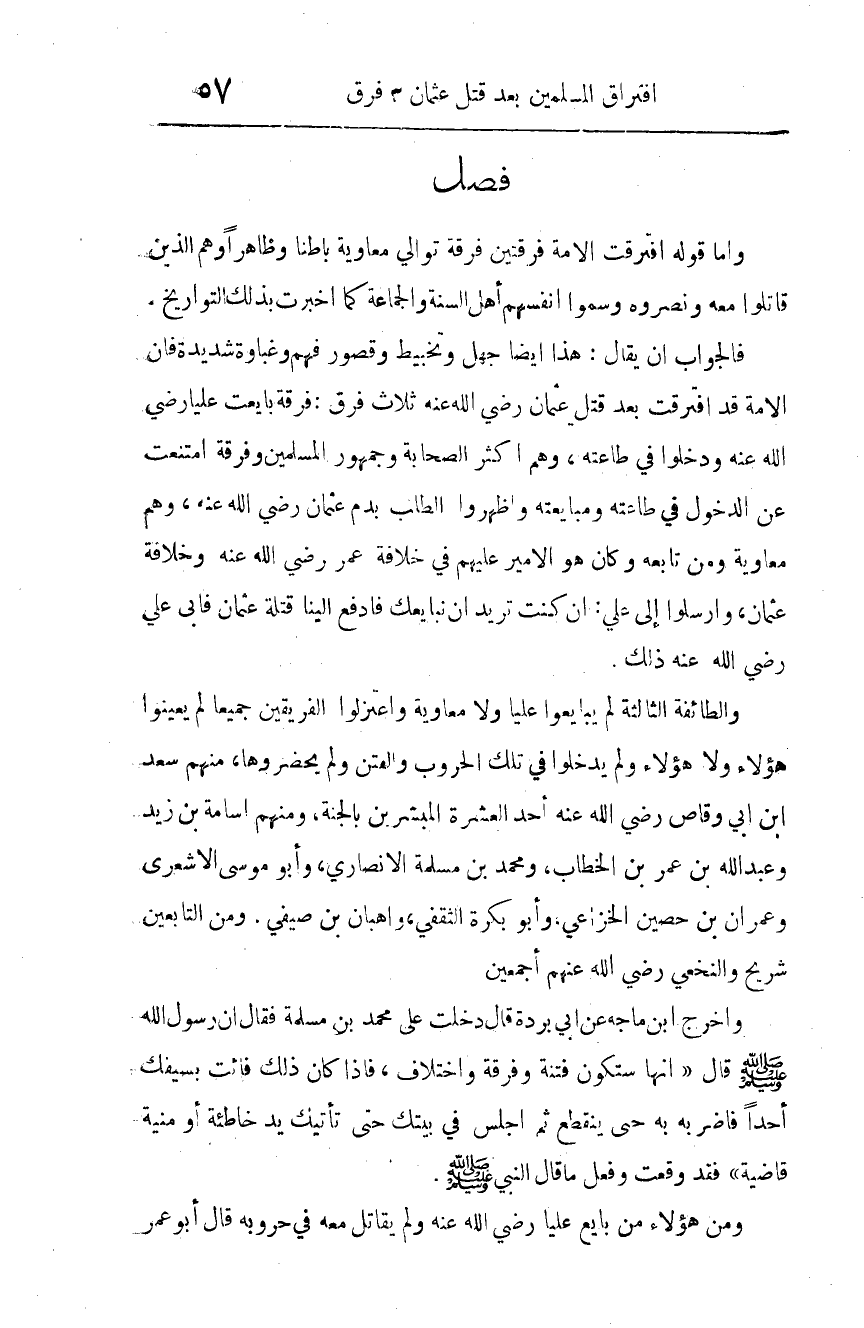 افتراق المسلمين بعد قتل عثمان ٣ فرق ٥٧
فصل
واما قوله افترقت الامة فرقتين فرقة توالي معاوية باطنا وظاهراً وهم الذين
قاتلوا معه ونصروه وسموا انفسهم أهل السنة والجماعة كما اخبرت بذلك التواريخ .
فالجواب ان يقال : هذا ايضا جهل وتخبيط وقصور فهم وغباوة شديدة فان
الامة قد افترقت بعد قتل عثمان رضي الله عنه ثلاث فرق : فرقة بايعت عليا رضي
الله عنه ودخلوا في طاعته ، وهم اكثر الصحابة وجمهور المسلمين وفرقة امتنعت
عن الدخول في طاعته ومبايعته واظهروا الطلب بدم عثمان رضي الله عنه ، وهم
معاوية ومن تابعه وكان هو الامير عليهم في خلافة عمر رضي الله عنه وخلافة
عثمان، وارسلوا إلى علي : ان كنت تريد ان نبايعك فادفع الينا قتلة عثمان فابى علي
رضي الله عنه ذلك .
والطائفة الثالثة لم يبايعوا عليا ولا معاوية واعتزلوا الفريقين جميعا لم يعينوا
هؤلاء ولا هؤلاء ولم يدخلوا في تلك الحروب والفتن ولم يحضروها، منهم سعد
ابن ابي وقاص رضي الله عنه أحد العشرة المبشرين بالجنة، ومنهم اسامة بن زيد
وعبدالله بن عمر بن الخطاب، ومحمد بن مسلمة الانصاري، وأبو موسى الاشعرى
وعمران بن حصين الخزاعي، وأبو بكرة الثقفي، واهبان بن صيفي . ومن التابعين
شريح والنخعي رضي الله عنهم أجمعين
واخرج ابن ماجه عن ابي بردة قال دخلت على محمد بن مسلمة فقال ان رسول الله
ﷺ قال « انها ستكون فتنة وفرقة واختلاف ، فاذا كان ذلك فائت بسيفك
أحداً فاضربه به حتى ينقطع ثم اجلس في بيتك حتى تأتيك يد خاطئة أو منية
قاضية» فقد وقعت وفعل ماقال النبي ﷺ .
ومن هؤلاء من بايع عليا رضي الله عنه ولم يقاتل معه في حروبه قال أبو عمر